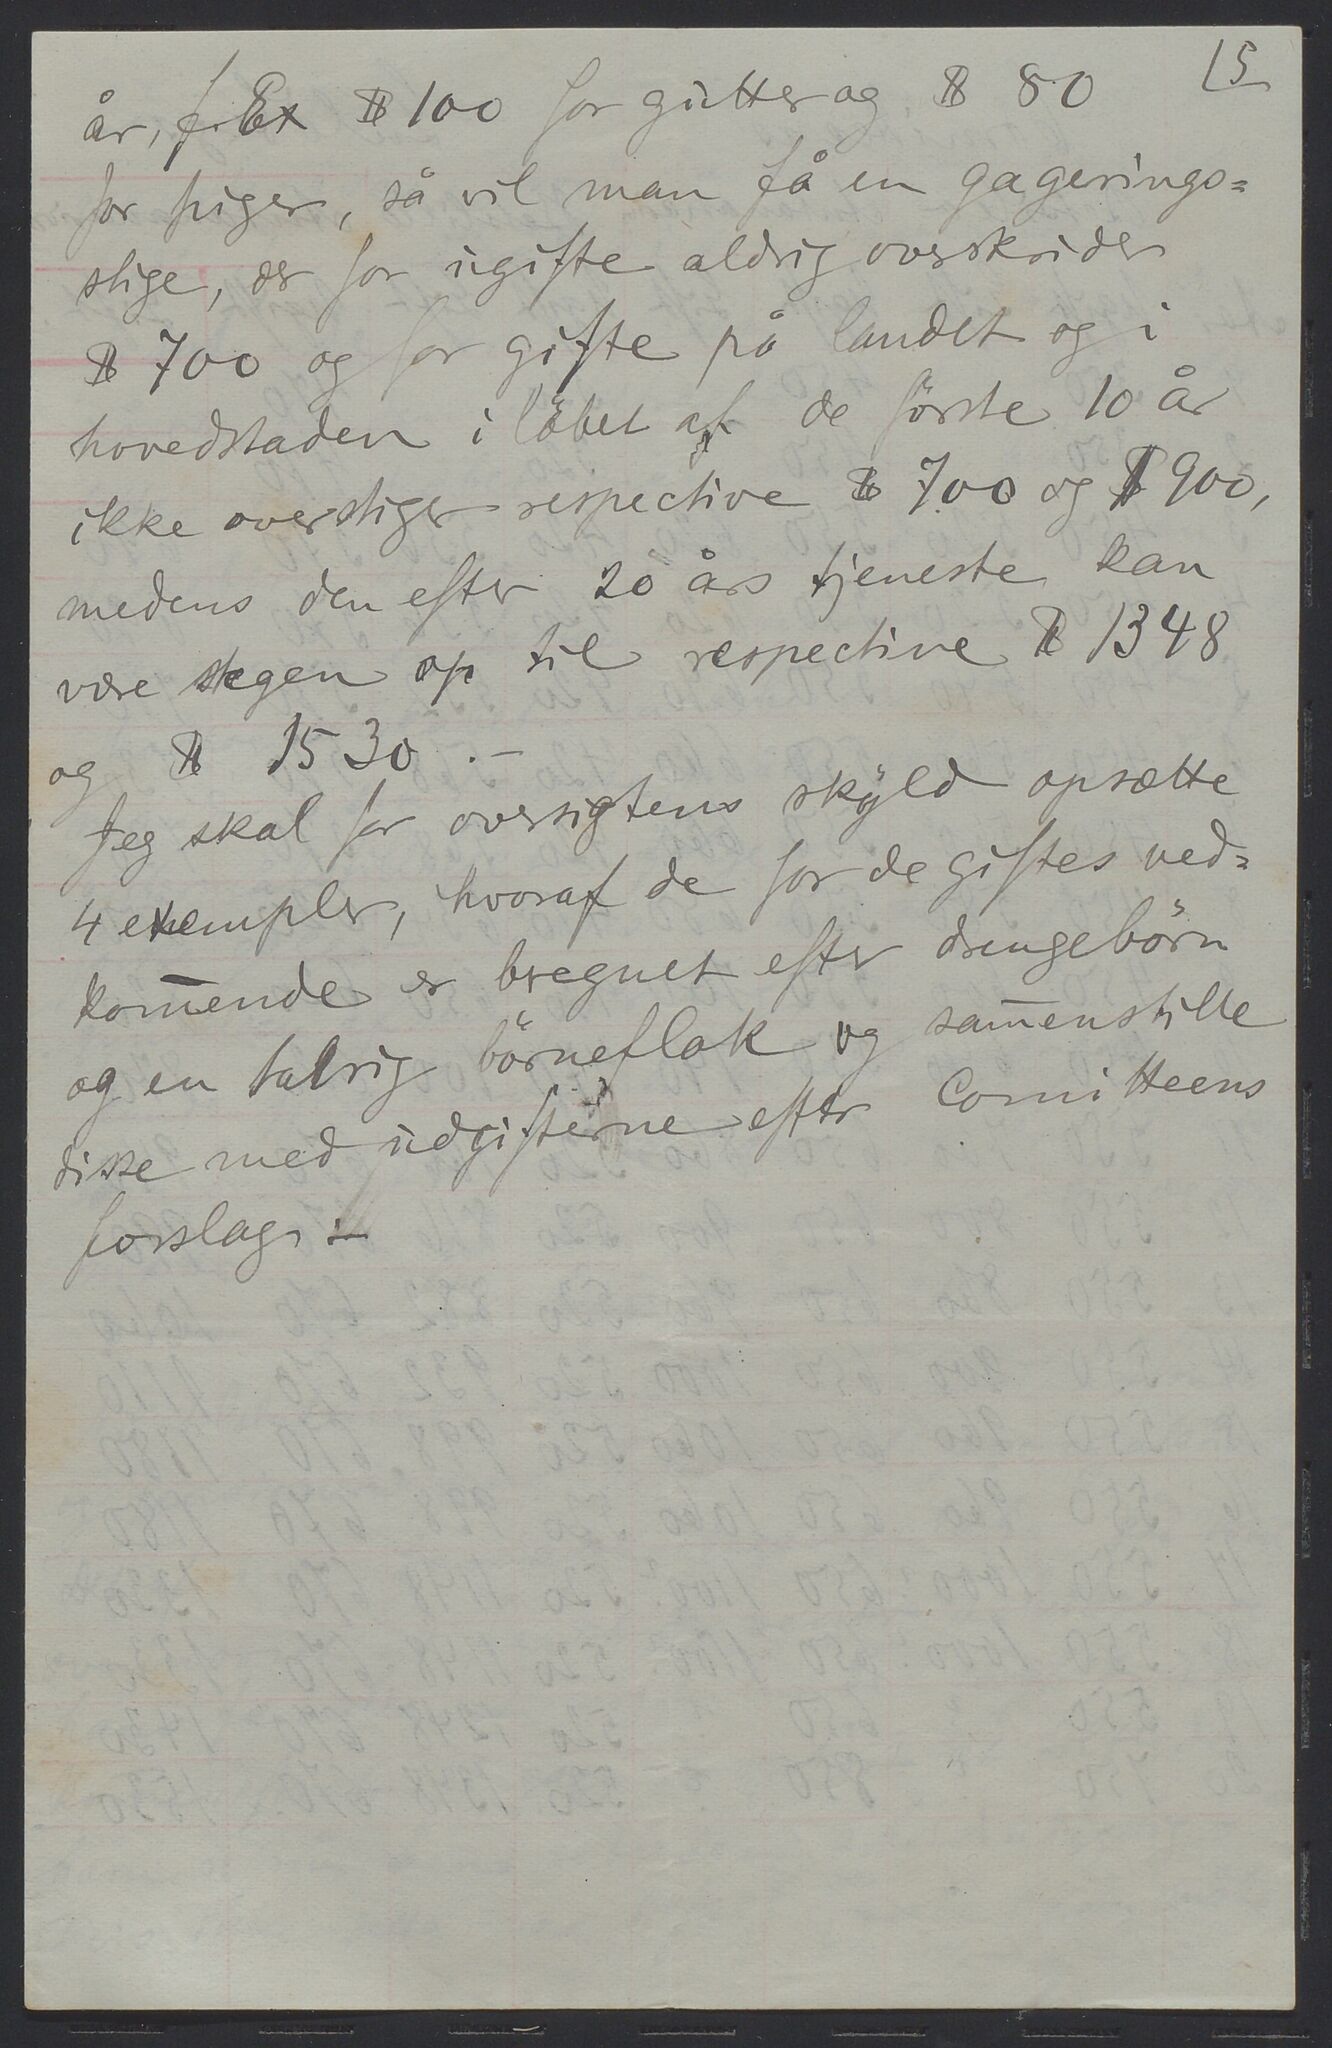 15
år, f. Ex $ 100 for gutter og $ 80
for piger, så vil man få en gagerings=
stige, der for ugifte aldrig overskrider
$ 700 og for gifte på landet og i
hovedstaden i löbet af de förste 10 år
ikke overstiger respective $ 700 og $ 900,
medens den efter 20 års tjeneste kan
være stegen op til respective $ 1348
og $ 1530.-
Jeg skal for oversigtens skyld opsætte
4 exempler, hvoraf de for de giftes ved=
kom̄ende er beregnet efter drengebörn
og en talrig börneflok og sam̄enstille
disse med udgifterne efter Comitteens
forslag:-